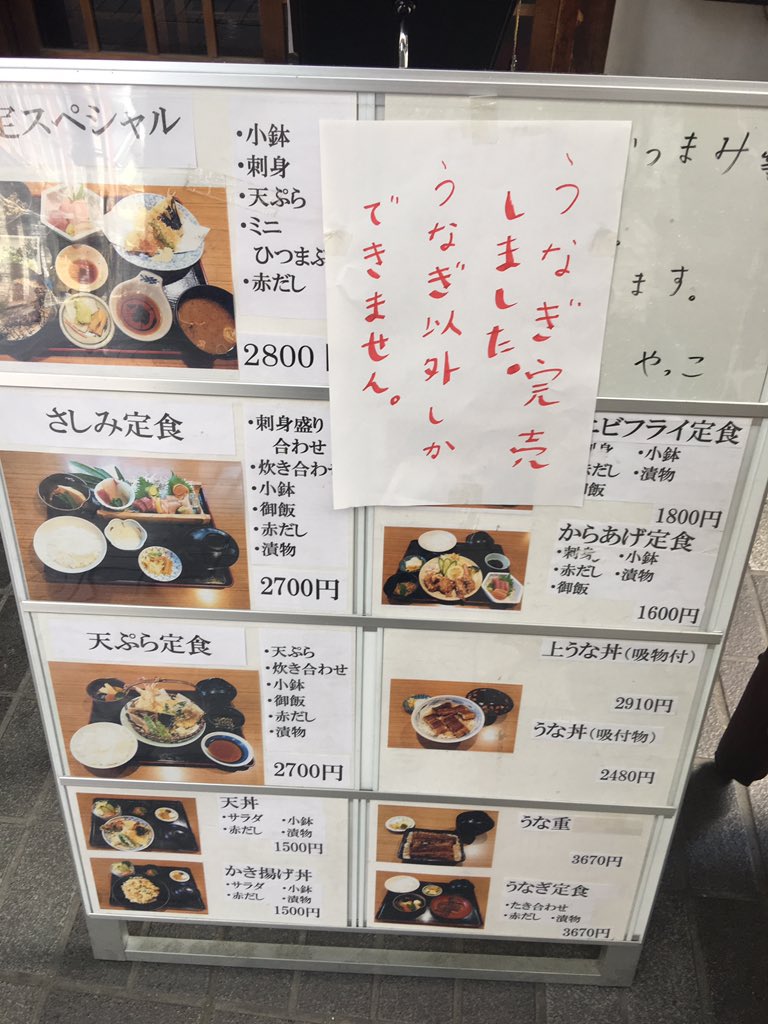 定スペシャル
・小鉢
・刺身
・天ぷら
・ミニ
ひつまぶ
・赤だし
2800
うなぎ完売
しました。
うなぎ以外しか
できません。
つまみ
ます。
やっこ
さしみ定食
・刺身盛り
合わせ
・炊き合わ
・小鉢
・御飯
・赤だし
・漬物
2700円
ビフライ定食
・小鉢
赤だし ・漬物
御飯
1800円
からあげ定食
・刺身 ・小鉢
・赤だし ・漬物
・御飯
1600円
天ぷら定食
・天ぷら
・炊き合わせ
・小鉢
・御飯
・赤だし
・漬物
2700円
上うな丼(吸物付)
2910円
うな丼(吸付物)
2480円
天丼
・サラダ ・小鉢
・赤だし ・漬物
1500円
かき揚げ丼
・サラダ ・小鉢
・赤だし ・漬物
1500円
うな重
3670円
うなぎ定食
・たき合わせ
・赤だし ・漬物
3670円